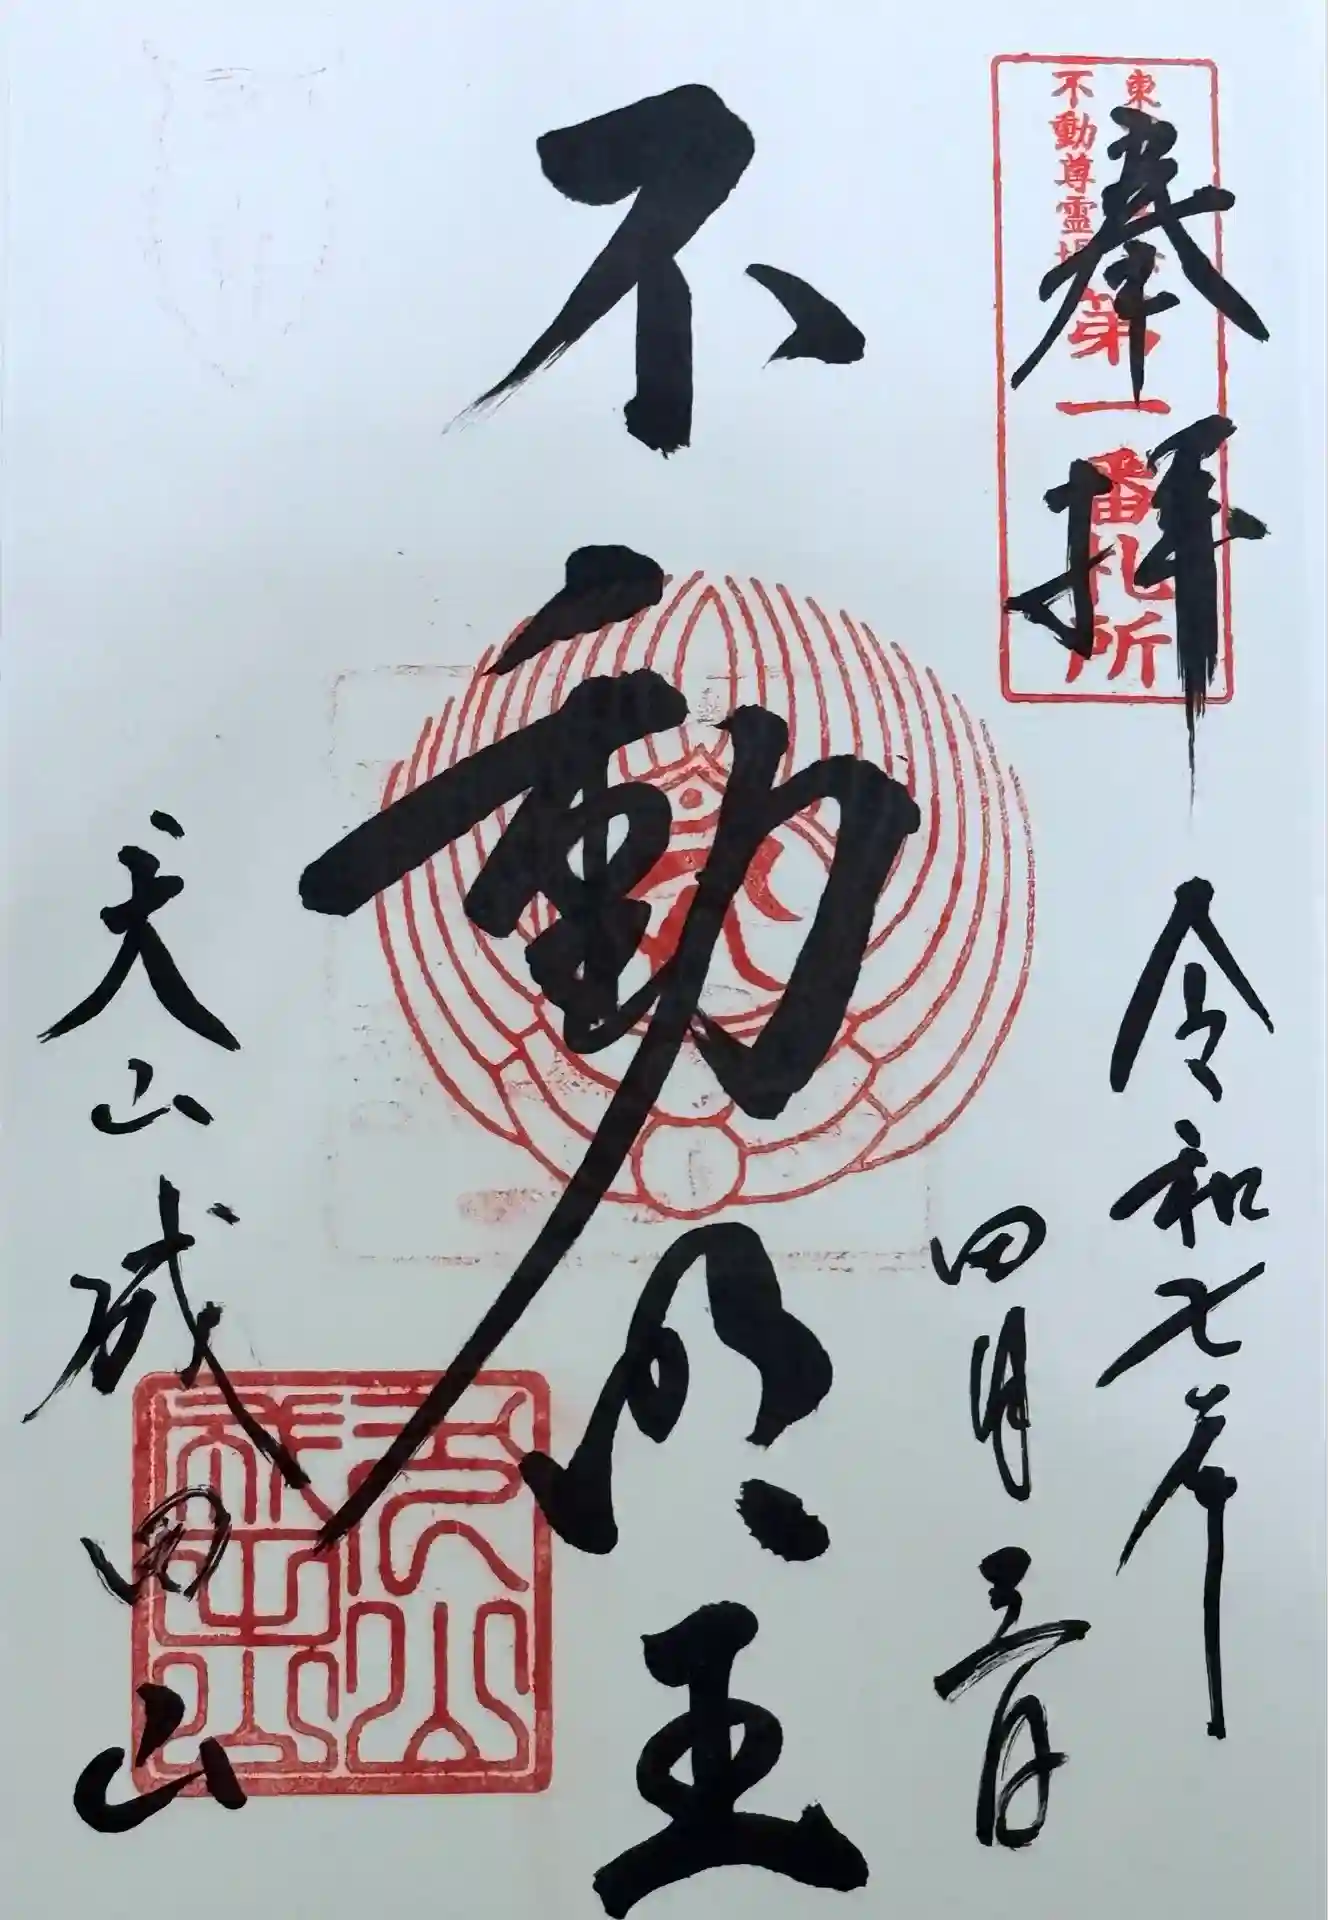 奉拝
東
不動尊霊場
第一番札所
令和七年
四月三日
不動明王
犬山成田山
犬山
成田山